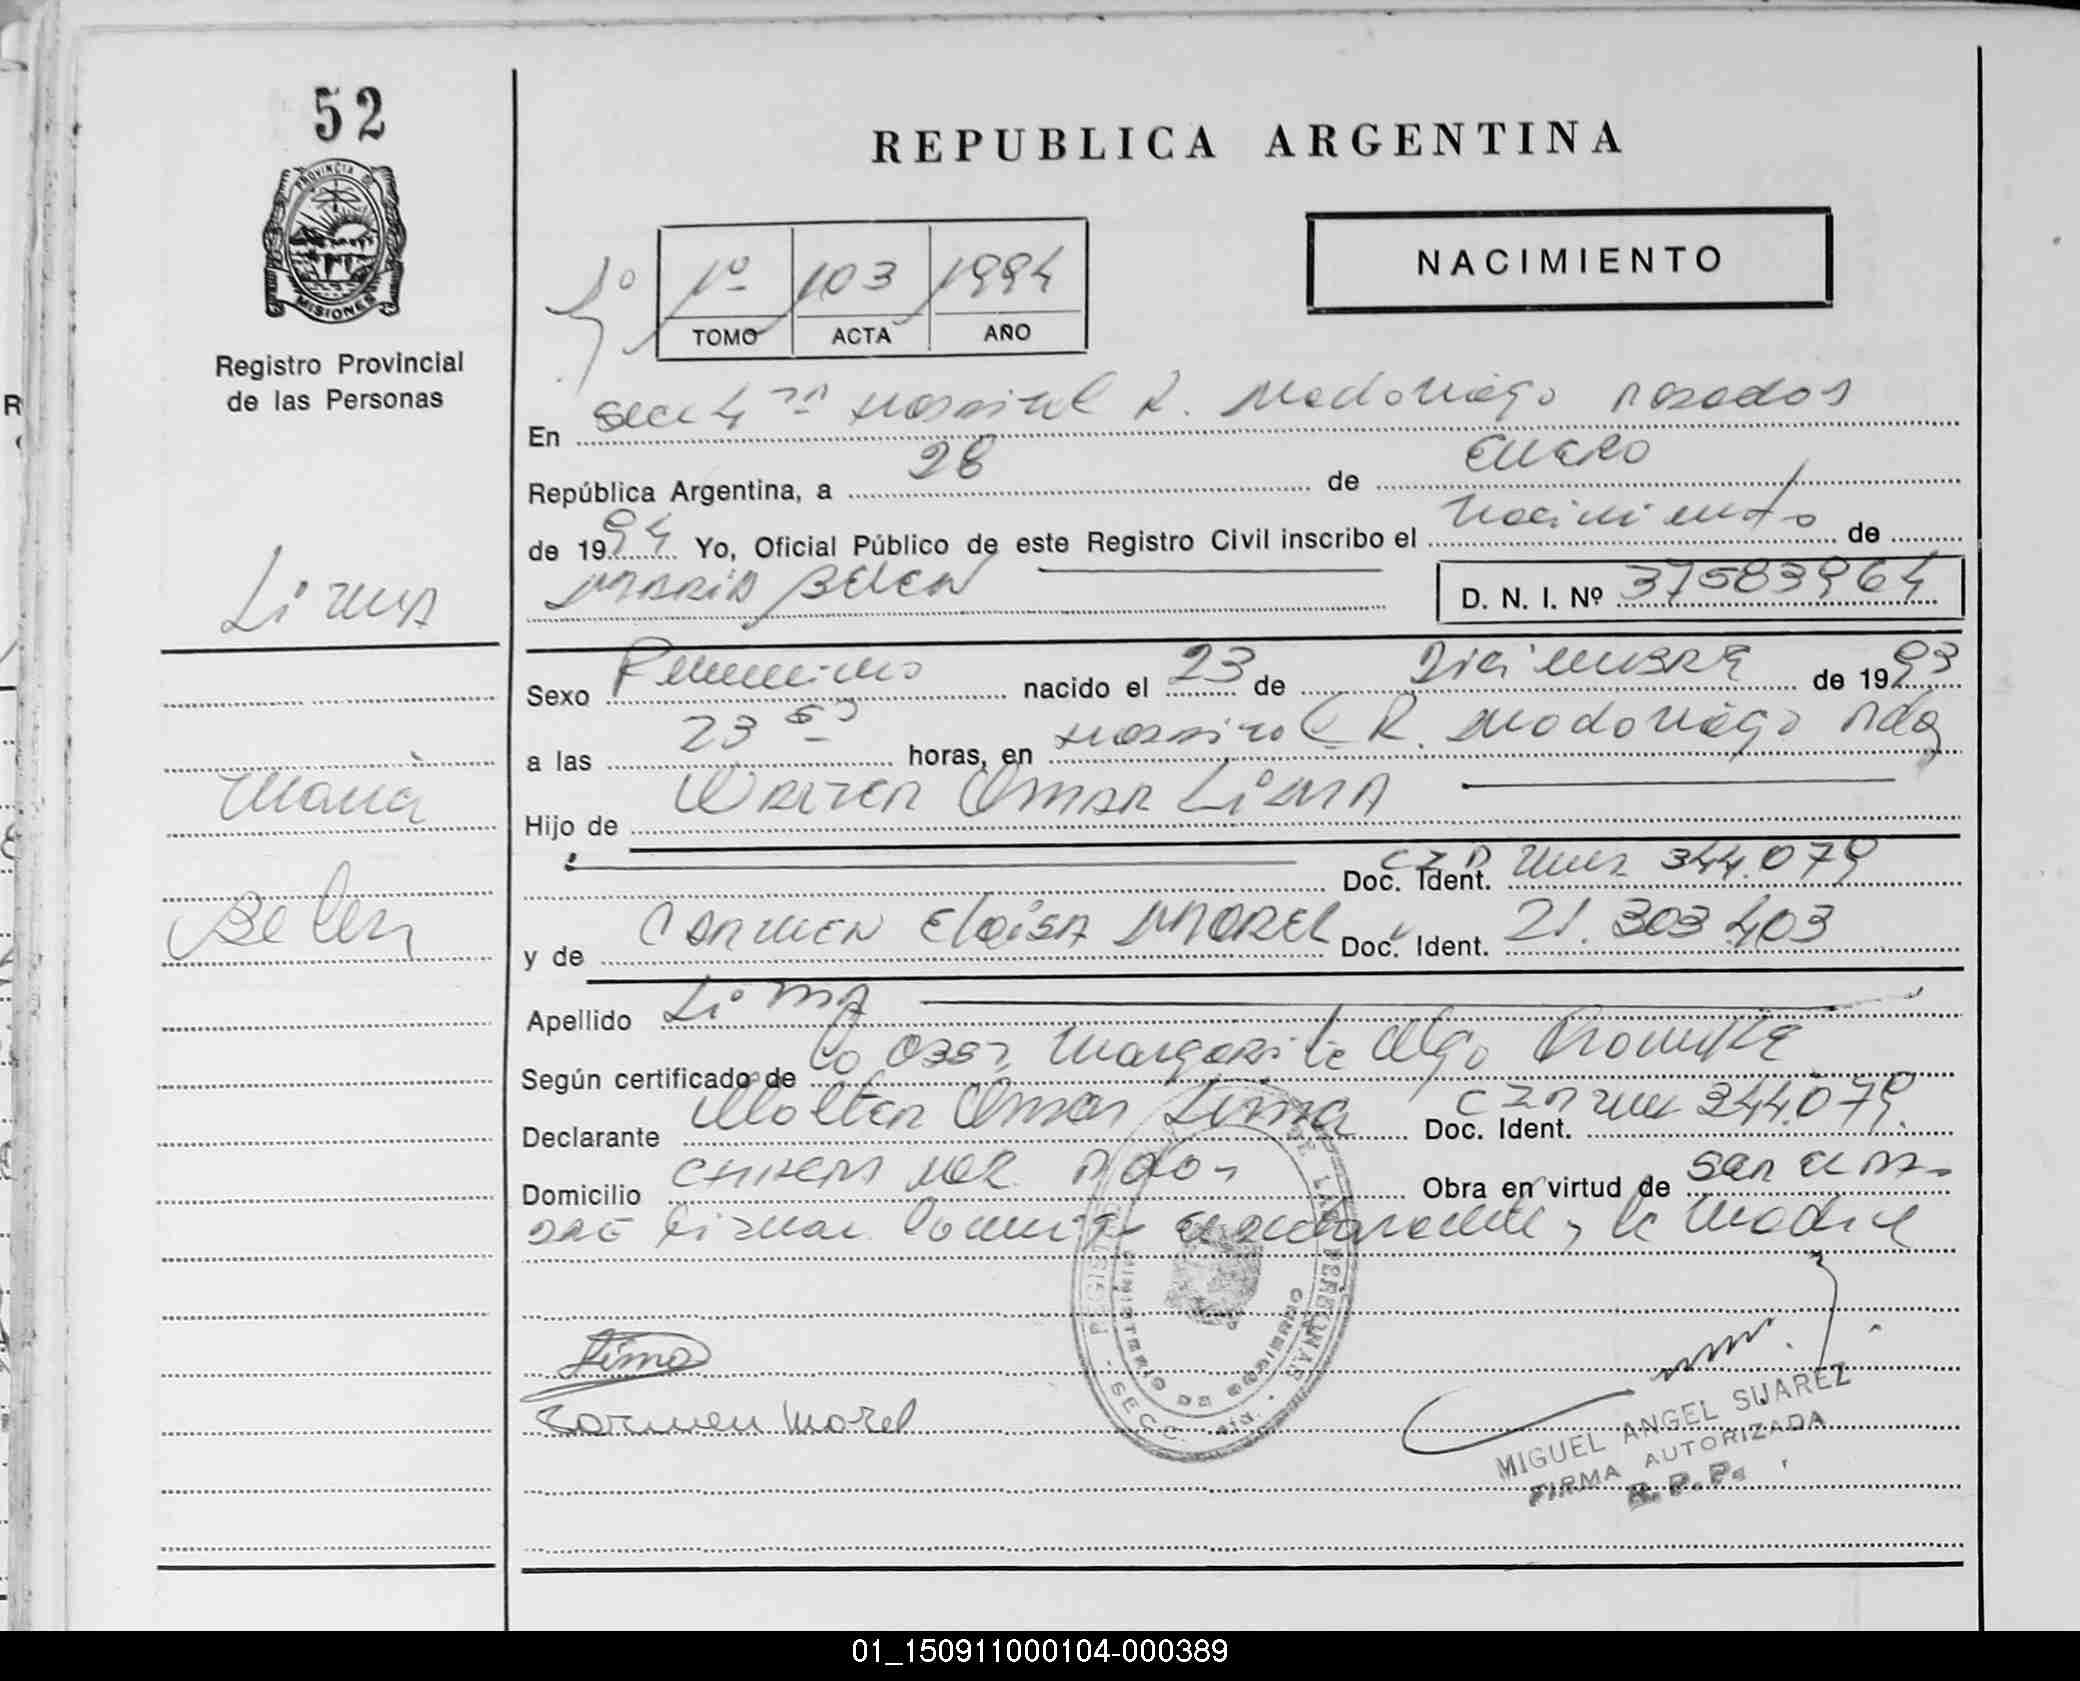 52
PROVINCIA DE
MISIONES
Registro Provincial
de las Personas
Lima
Maria
Belen
REPUBLICA ARGENTINA
NACIMIENTO
1º 1º 103 1994
TOMO ACTA AÑO
En Secc 4ta Hospital R. Madariaga Posadas
República Argentina, a 28 de Enero
de 1994 Yo, Oficial Público de este Registro Civil inscribo el Nacimiento de
MARIA BELEN D. N. I. Nº 37583964
Sexo Femenino nacido el 23 de Diciembre de 1993
a las 23 50 horas, en Hospital R. Madariaga Pdas
Hijo de Walter Omar Lima
Doc. Ident. CIP Mnes 344.079
y de Carmen Eloisa Morel Doc. Ident. 21.303.403
Apellido Lima
Según certificado de la Obst. Margarita Olga
Declarante Walter Omar Lima Doc. Ident. CIP Mnes 344.079.
Domicilio Pdas Obra en virtud de ser el pa-
dre firman conmigo el declarante y la madre
Lima
Carmen Morel
REGISTRO DE LAS PERSONAS
MINISTERIO DE GOBIERNO
SECC. 4ta.
MIGUEL ANGEL SUAREZ
FIRMA AUTORIZADA
R.P.P.
01_150911000104-000389